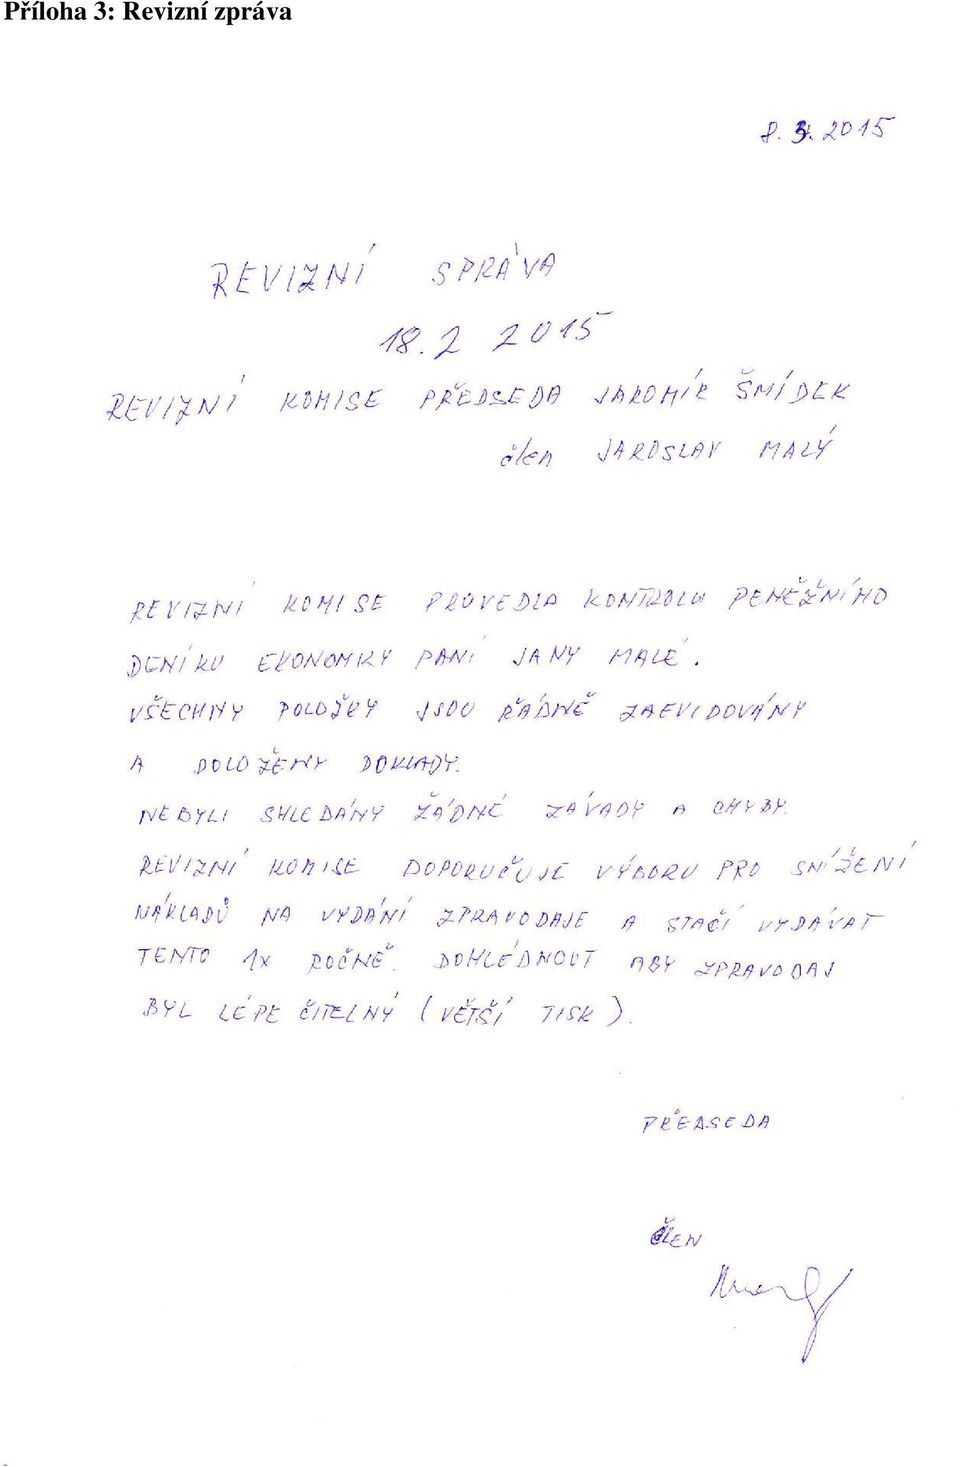 Příloha 3: Revizní zpráva
8. 3. 2015
REVIZNÍ SPRÁVA
18.2 2015
REVIZNÍ KOMISE PŘEDSEDA JAROMÍR ŠMÍDEK
člen JAROSLAV MALÝ
REVIZNÍ KOMISE PROVEDLA KONTROLU PENĚŽNÍHO
DENÍKU EKONOMKY PANÍ JANY MALÉ.
VŠECHNY POLOŽKY JSOU ŘÁDNĚ ZAEVIDOVÁNY
A DOLOŽENY DOKLADY.
NEBYLI SHLEDÁNY ŽÁDNÉ ZÁVADY A CHYBY.
REVIZNÍ KOMISE DOPORUČUJE VÝBORU PRO SNÍŽENÍ
NÁKLADŮ NA VYDÁNÍ ZPRAVODAJE A STAČÍ VYDÁVAT
TENTO 1x ROČNĚ. DOHLÉDNOUT ABY ZPRAVODAJ
BYL LÉPE ČITELNÝ (VĚTŠÍ TISK).
PŘEDSEDA
ČLEN